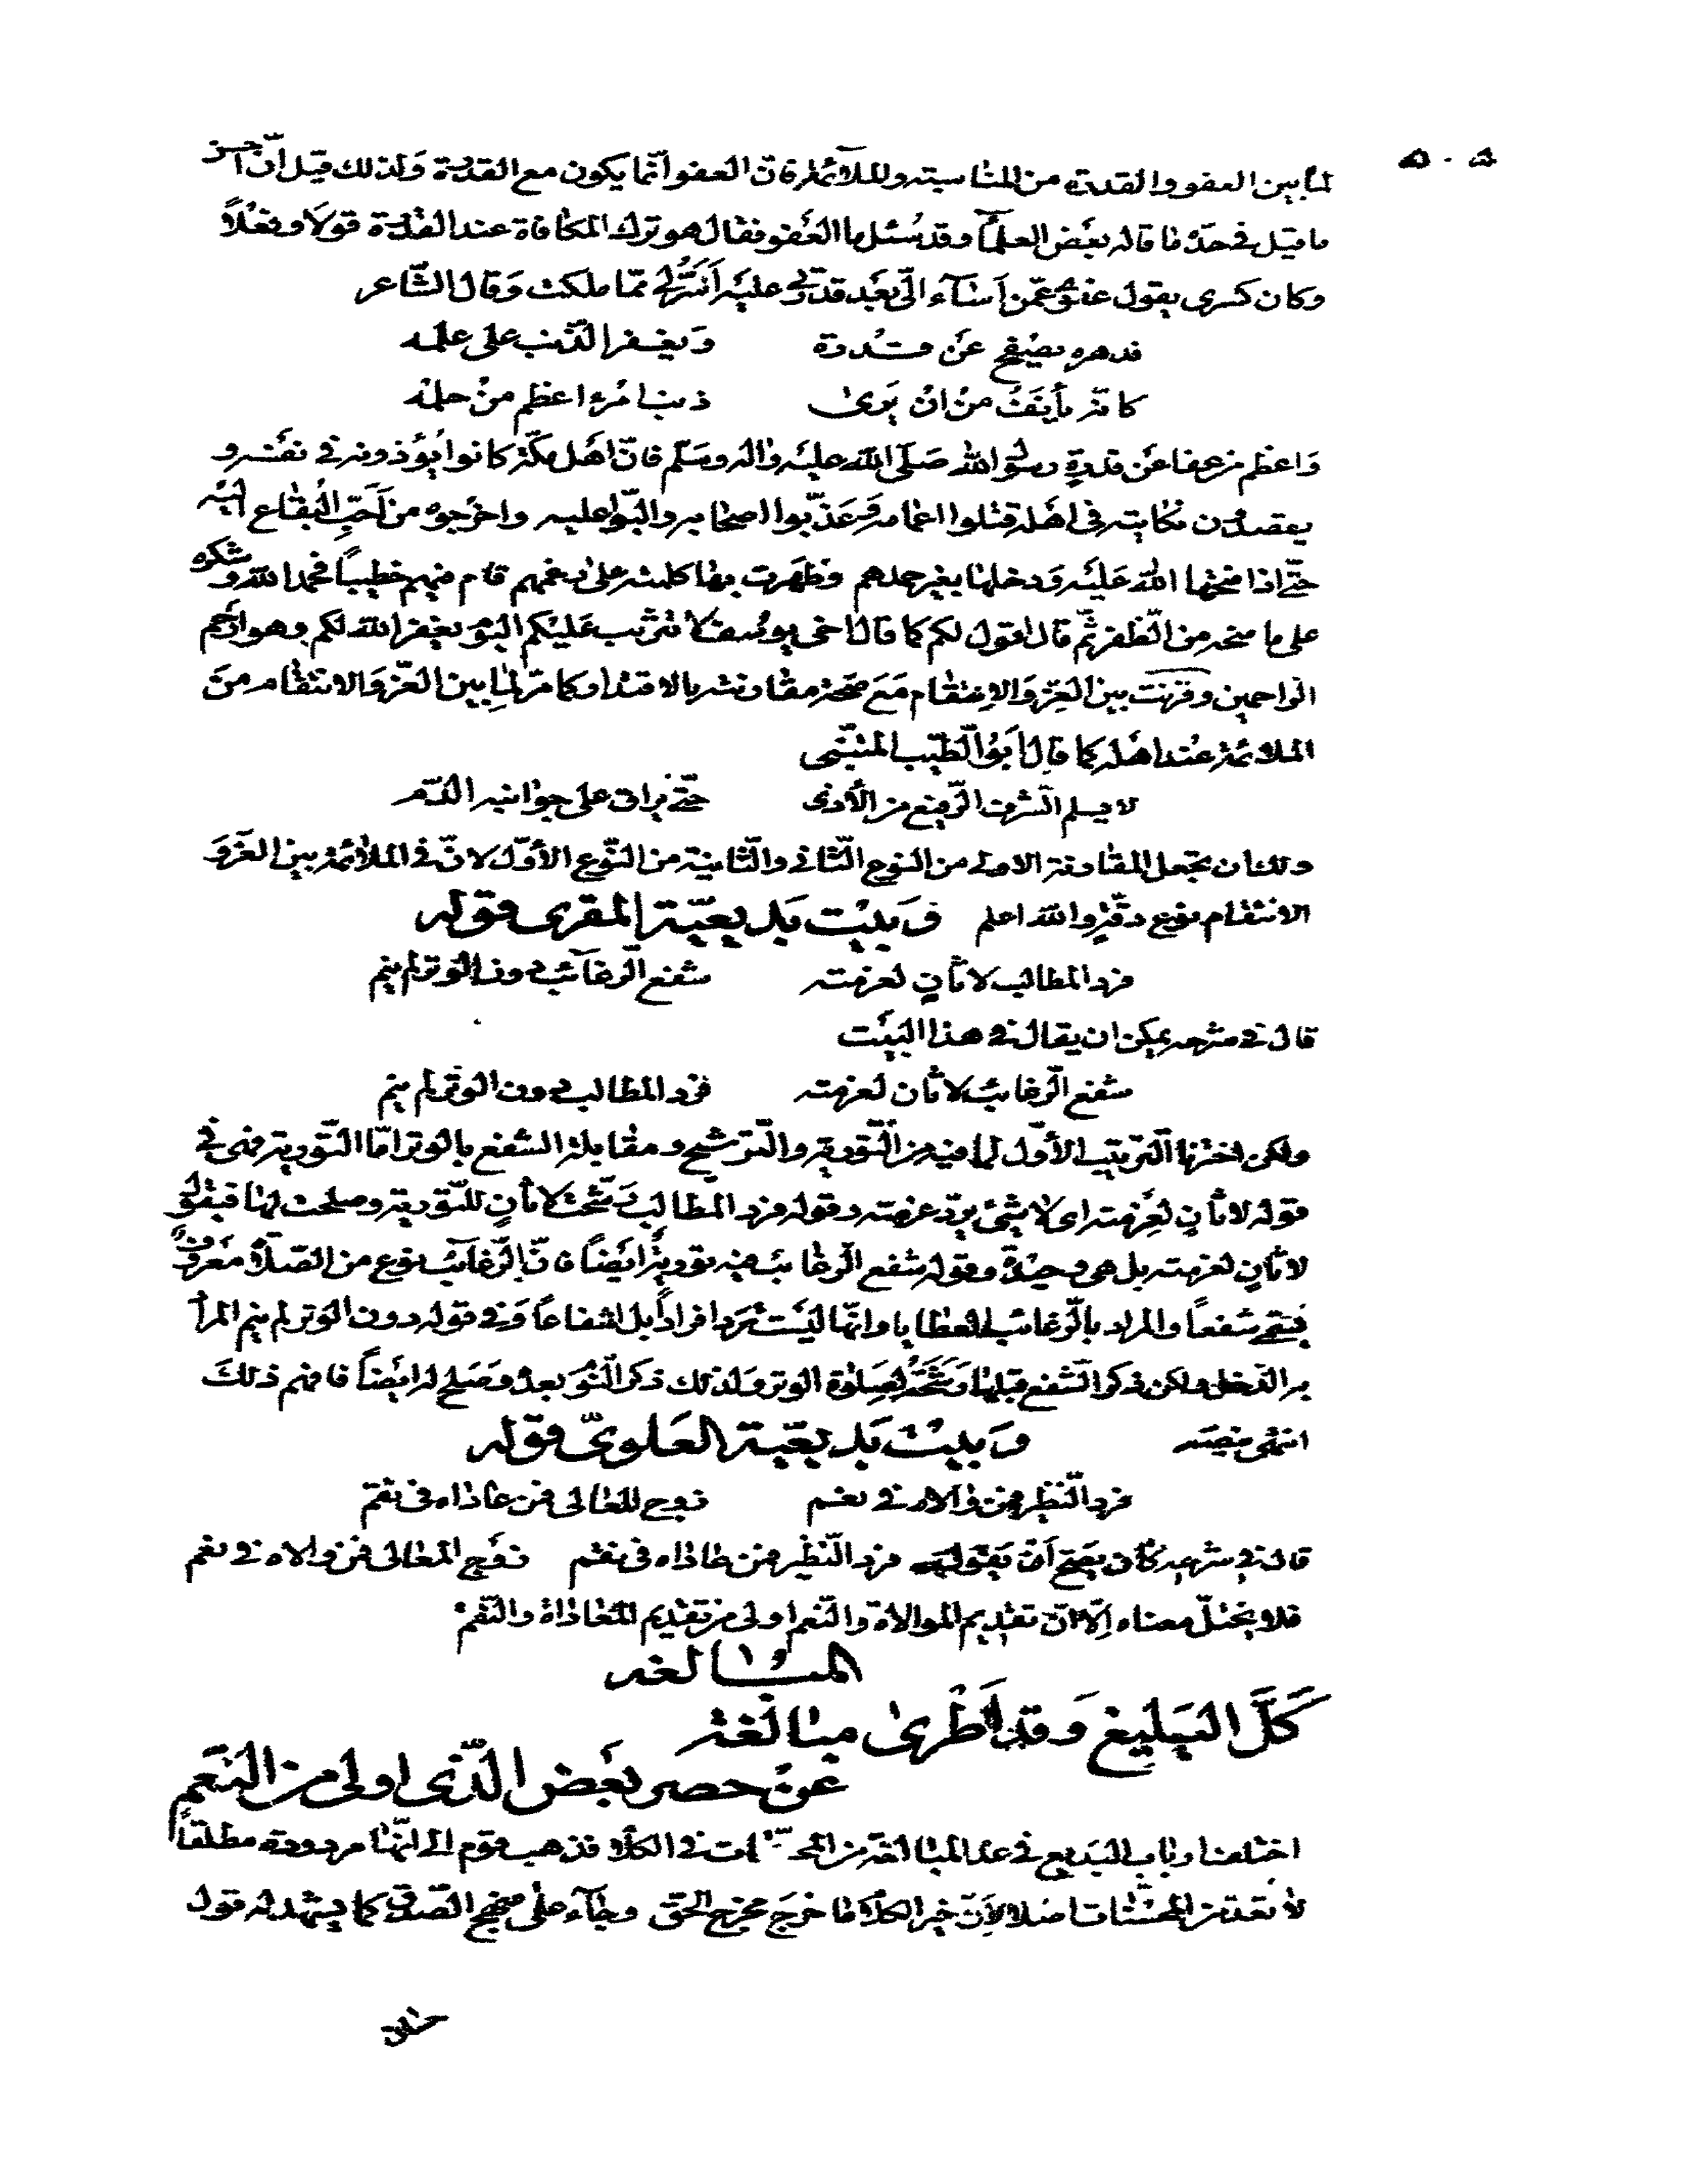 لما بين العفو والقدرة من المناسبة والملائمة فان العفو انما يكون مع القدرة ولذلك قيل ان احسن
ما قيل في حده ما قاله بعض العلماء وقد سئل ما العفو فقال هو ترك المكافاة عند القدرة قولا وفعلا
وكان كسرى يقول عفوي عمن اساء الي بعد قدرتي عليه اسر لي مما ملكت وقال الشاعر
قدره يصفح عن قدرة ويغفر الذنب على علمه
كانه يأنف من ان يرى ذنب امرء اعظم من حلمه
واعظم من عفا عن قدرة رسول الله صلى الله عليه واله وسلم فان اهل مكة كانوا يؤذونه في نفسه و
يقصدون نكايته في اهله قتلوا اعمامه وعذبوا اصحابه والبوا عليه واخرجوه من احب البقاع اليه
حتى اذا فتحها الله عليه ودخلها بغير حمدهم وظهرت بها كلمته على رغمهم قام فيهم خطيبا فحمد الله وشكره
على ما منحه من الظفر ثم قال اقول لكم كما قال اخي يوسف لا تثريب عليكم اليوم يغفر الله لكم وهو ارحم
الراحمين وقرنت بين العز والانتقام مع صحة مقارنته بالاقتدار كما مر لما بين العز والانتقام من
الملائمة عند اهله كما قال ابو الطيب المتنبي
لا يسلم الشرف الرفيع من الأذى حتى يراق على جوانبه الدم
ولك ان تجعل المقارنة الاولى من النوع الثاني والثانية من النوع الأول لان في الملائمة بين العز و
الانتقام نوع دقة والله اعلم وبيت بديعية المقري قوله
فرد المطالب لا ثان لعزمته شفع الرغائب دون الوتر لم ينم
قال في شرحه يمكن ان يقال في هذا البيت
شفع الرغائب لا ثان لعزمته فرد المطالب دون الوتر لم ينم
ولكن اخترنا الترتيب الأول لما فيه من التورية والترشيح ومقابلة الشفع بالوتر اما التورية فهى في
قوله لا ثان لعزمته اى لا شئ يرد عزمته وقوله فرد المطالب رشحت لا ثان للتورية وصلحت لها فبقوله
لا ثان لعزمته بل هي وحيدة وقوله شفع الرغائب فيه تورية أيضا فان الرغائب نوع من الصلاة معروف
فبقي شفعا والمراد بالرغائب العطايا وانها ليست ترد افرادا بل اشفاعا وفي قوله دون الوتر لم ينم المراد
به الذحل ولكن ذكر الشفع قبلها رشحه لصلوة الوتر ولذلك ذكر النوم بعده وصلح له ايضا فافهم ذلك
انتهى بنصه وبيت بديعية العلوي قوله
فرد النظير فمن والاه في نعم زوج المعالى فمن عاداه في نقم
قال في شرحه كان يصح أن يقول فرد النظير فمن عاداه في نقم زوج المعالى فمن والاه في نعم
فلا يختل معناه إلا ان تقديم الموالاة والنعم اولى من تقديم المعاداة والنقم
المبالغة
كل البليغ وقد أطرى مبالغة
عن حصر بعض الذي اولى من النعم
اختلف ارباب البديع في عد المبالغة من المحسنات في الكلام فذهب قوم الى انها مردودة مطلقا
لا تعد من المحسنات اصلا لأن خير الكلام ما خرج مخرج الحق وجاء على منهج الصدق كما يشهد له قول
حسان